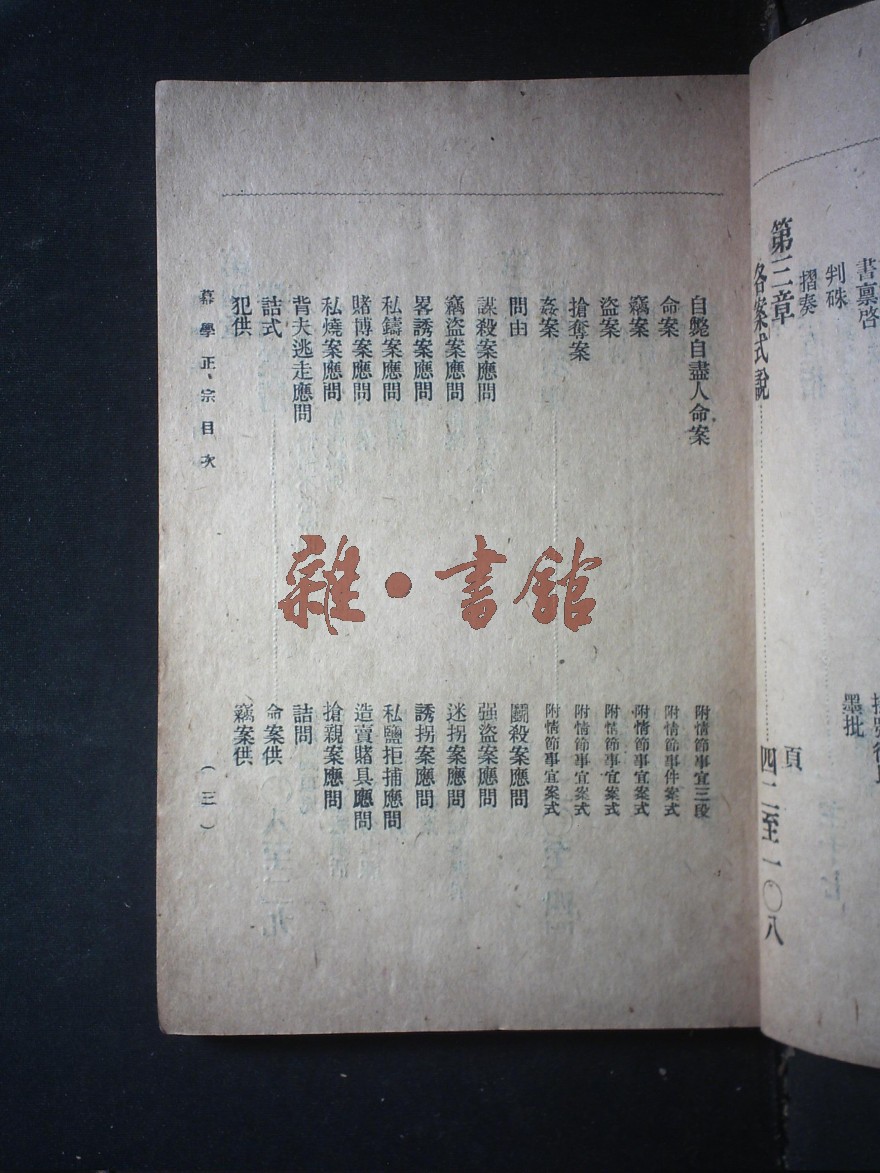 書禀啓
判硃
摺奏
墨批
第三章
各案式說
頁
四二至一〇八
自斃自盡人命案
附情節事宜三段
命案
附情節事件案式
竊案
附情節事宜案式
盜案
附情節事宜案式
搶奪案
附情節事宜案式
姦案
附情節事宜案式
問由
鬬殺案應問
謀殺案應問
强盜案應問
竊盜案應問
迷拐案應問
畧誘案應問
誘拐案應問
私鑄案應問
私鹽拒捕應問
賭博案應問
造賣賭具應問
私燒案應問
搶親案應問
背夫逃走應問
詰問
詰式
命案供
犯供
竊案供
幕學正宗目次
(三)
雜·書館